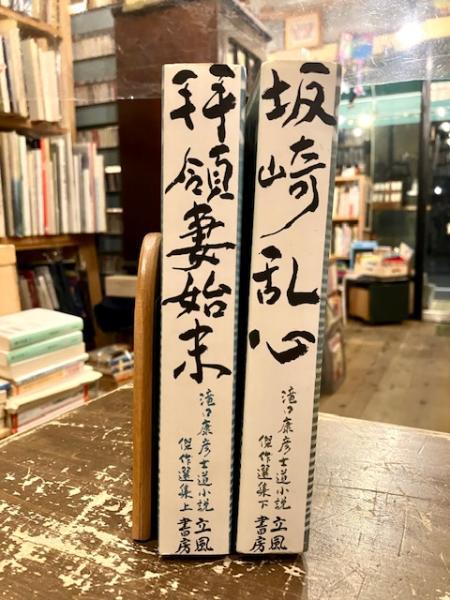 拝領妻始末
滝口康彦士道小説
傑作選集上
立風書房
坂崎乱心
滝口康彦士道小説
傑作選集下
立風書房